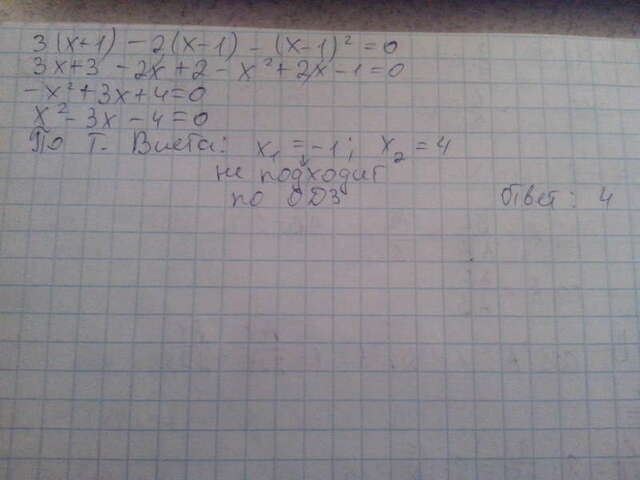 3(x+1) - 2(x-1) - (x-1)² = 0
3x+3 - 2x + 2 - x² + 2x - 1 = 0
-x² + 3x + 4 = 0
x² - 3x - 4 = 0
По Т. Виета: x₁ = -1; x₂ = 4
не подходит
по ОДЗ Ответ: 4